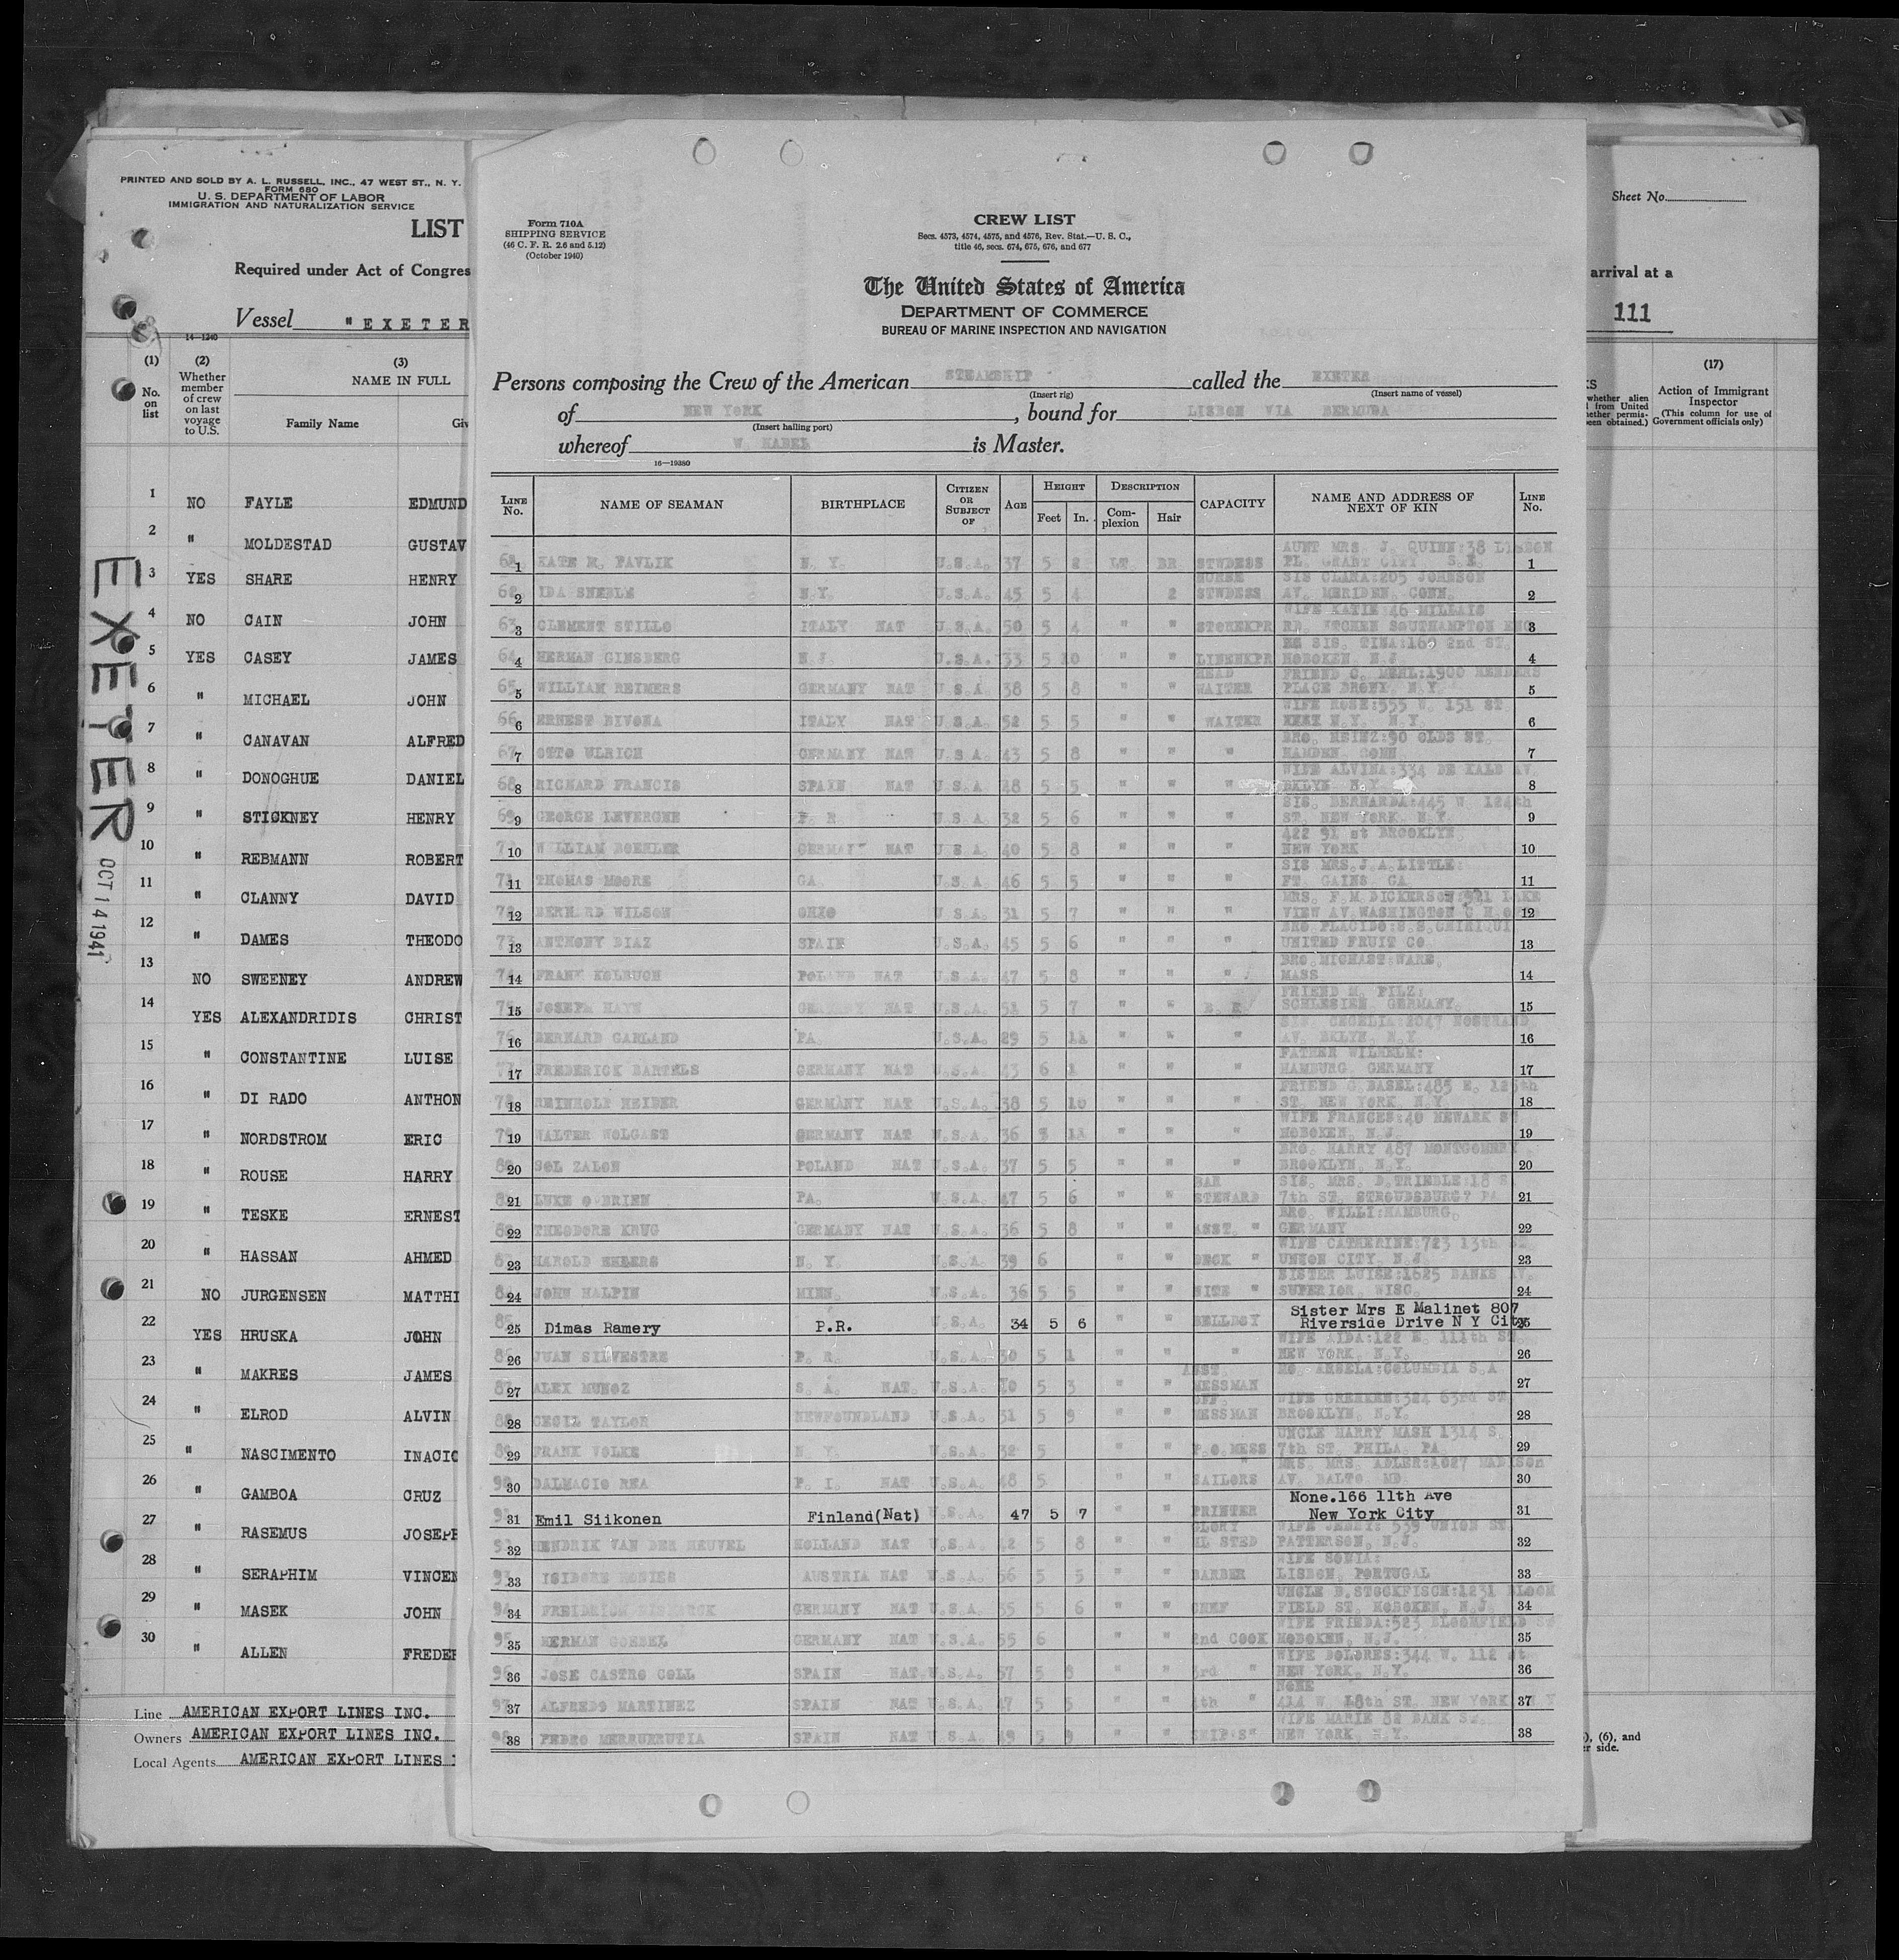 PRINTED AND SOLD BY A. L. RUSSELL, INC., 47 WEST ST., N. Y.
FORM 680
U. S. DEPARTMENT OF LABOR
IMMIGRATION AND NATURALIZATION SERVICE
LIST
Required under Act of Congres
Vessel "EXETER
14-1240
(1) (2) (3)
No. on list
Whether member of crew on last voyage to U.S.
NAME IN FULL
Family Name Giv
1 NO FAYLE EDMUND
2 " MOLDESTAD GUSTAV
3 YES SHARE HENRY
4 NO CAIN JOHN
5 YES CASEY JAMES
6 " MICHAEL JOHN
7 " CANAVAN ALFRED
8 " DONOGHUE DANIEL
9 " STICKNEY HENRY
10 " REBMANN ROBERT
11 " CLANNY DAVID
12 " DAMES THEODO
13 NO SWEENEY ANDREW
14 YES ALEXANDRIDIS CHRIST
15 " CONSTANTINE LUISE
16 " DI RADO ANTHON
17 " NORDSTROM ERIC
18 " ROUSE HARRY
19 " TESKE ERNEST
20 " HASSAN AHMED
21 NO JURGENSEN MATTHI
22 YES HRUSKA JOHN
23 " MAKRES JAMES
24 " ELROD ALVIN
25 " NASCIMENTO INACIO
26 " GAMBOA CRUZ
27 " RASEMUS JOSEPH
28 " SERAPHIM VINCEN
29 " MASEK JOHN
30 " ALLEN FREDER
Line AMERICAN EXPORT LINES INC.
Owners AMERICAN EXPORT LINES INC.
Local Agents AMERICAN EXPORT LINES
EXETER
OCT 14 1941
Form 710A
SHIPPING SERVICE
(46 C. F. R. 2.6 and 5.12)
(October 1940)
CREW LIST
Secs. 4573, 4574, 4575, and 4576, Rev. Stat.—U. S. C.,
title 46, secs. 674, 675, 676, and 677
The United States of America
DEPARTMENT OF COMMERCE
BUREAU OF MARINE INSPECTION AND NAVIGATION
Persons composing the Crew of the American STEAMSHIP called the EXETER
(Insert rig) (Insert name of vessel)
of NEW YORK, bound for LISBON VIA BERMUDA
(Insert hailing port)
whereof W. HABEL is Master.
16—19380
LINE No. NAME OF SEAMAN BIRTHPLACE CITIZEN OR SUBJECT OF AGE HEIGHT Feet In. DESCRIPTION Complexion Hair CAPACITY NAME AND ADDRESS OF NEXT OF KIN LINE No.
AUNT MRS. J. QUINN:38 LISBON
1 KATE M. PAVLIK N. Y. U.S.A. 37 5 2 LT. BR STWDESS PL. GRANT CITY S.I. 1
NURSE SIS CLARA:205 JOHNSON
2 IDA SNEBLE N.Y. U.S.A. 45 5 4 STWDESS AV. MERIDEN, CONN. 2
WIFE KATIE:46 MILLAIS
3 CLEMENT STILLO ITALY NAT U.S.A. 50 5 4 " " STOREKPR RD. SOUTHAMPTON ENG 3
SIS. TINA:160 2nd ST.
4 HERMAN GINSBERG N.J. U.S.A. 33 5 10 " " LINENKPR HOBOKEN, N.J. 4
HEAD FRIEND
5 WILLIAM REIMERS GERMANY NAT U.S.A 38 5 8 " " WAITER PLACE BRONX, N.Y. 5
WIFE ROSE:555 W. 151 ST
6 ERNEST BIVONA ITALY NAT U.S.A. 52 5 5 " " WAITER N.Y. N.Y. 6
BRO. HEINZ:90 OLDS ST.
7 OTTO ULRICH GERMANY NAT U.S.A. 43 5 8 " " " HAMDEN CONN 7
WIFE ALVINA:334 DE KALB AV
8 RICHARD FRANCIS SPAIN NAT U.S.A 28 5 5 " " " BKLYN N.Y. 8
SIS. BERNARDA:445 W. 124th
9 GEORGE LEVERGNE P. R. U.S.A. 32 5 6 " " " ST. NEW YORK. N.Y. 9
422 91 st BROOKLYN.
10 WILLIAM BOEHLER GERMANY NAT U.S.A 40 5 8 " " " NEW YORK 10
SIS MRS.J.A.LITTLE:
11 THOMAS MOORE GA. U.S.A. 46 5 5 " " " FT. GAINS, GA 11
MRS. F.M.DICKERSON:921 LAKE
12 BERNARD WILSON OHIO U.S.A. 31 5 7 " " " VIEW AV.WASHINGTON C.H.O 12
BRO. PLACIDO:S.S.CHIRIQUI
13 ANTHONY DIAZ SPAIN U.S.A. 45 5 6 " " " UNITED FRUIT CO. 13
14 FRANK KOLBUCH POLAND NAT U.S.A. 47 5 8 " " " MASS 14
FRIEND M. PILZ:
15 JOSEPH HAYN GERMANY NAT U.S.A. 51 5 7 " " B. R. SCHLESIEN, GERMANY. 15
SIS. CECELIA:2047 NOSTRAND
16 BERNARD GARLAND PA. U.S.A. 29 5 11 " " " AV. BKLYN, N.Y 16
FATHER WILHELM:
17 FREDERICK BARTELS GERMANY NAT U.S.A. 43 6 1 " " " HAMBURG, GERMANY 17
FRIEND G.BASEL:485 E. 125th
18 REINHOLD HEIDER GERMANY NAT U.S.A. 38 5 10 " " " ST. NEW YORK, N.Y. 18
WIFE FRANCES:40 NEWARK ST
19 WALTER WOLGAST GERMANY NAT U.S.A. 36 5 11 " " " HOBOKEN, N.J. 19
BRO. HARRY 487 MONTGOMERY
20 SOL ZALON POLAND NAT U.S.A. 37 5 5 " " " BROOKLYN, N.Y. 20
BAR SIS. MRS. D.TRIEBLE:18 S
21 LUKE O'BRIEN PA. U.S.A. 47 5 6 " " STEWARD 7th ST. STROUDSBURG? PA 21
BRO. WILLY:HAMBURG,
22 THEODORE KRUG GERMANY NAT U.S.A. 36 5 8 " " ASST. " GERMANY 22
WIFE CATHERINE:723 13th
23 HAROLD EHLERS N. Y. U.S.A. 39 6 " " DECK " UNION CITY, N.J. 23
SISTER LUISE:1625 BANKS AV.
24 JOHN HALPIN MINN. U.S.A. 36 5 5 " " NITE " SUPERIOR, WISC. 24
Sister Mrs E Malinet 807
25 Dimas Ramery P.R. U.S.A. 34 5 6 " " BELLBOY Riverside Drive N Y City 25
WIFE AIDA:122 E. 111th ST
26 JUAN SILVESTRE P. R. U.S.A. 30 5 1 " " " NEW YORK, N.Y. 26
ASST. MO. ANGELA:COLUMBIA S.A
27 ALEX MUNOZ S. A. NAT. U.S.A. 20 5 3 " " MESSMAN 27
OFF. 324 63rd ST
28 CECIL TAYLOR NEWFOUNDLAND U.S.A. 31 5 9 " " MESSMAN BROOKLYN, N.Y. 28
UNCLE HARRY MASH 1314 S.
29 FRANK VOLKE N. Y. U.S.A. 32 5 " " P.O.MESS 7th ST. PHILA. PA. 29
MRS. ADLER:1027 MADISON
30 DALMACIO REA P. I. NAT U.S.A. 48 5 " " SAILORS AV. BALTO. MD. 30
None.166 11th Ave
31 Emil Siikonen Finland(Nat) U.S.A. 47 5 7 " " PRINTER New York City 31
GLORY WIFE JENNY: 539 UNION ST.
32 HENDRIK VAN DER HEUVEL HOLLAND NAT U.S.A. 42 5 8 " " HL STED PATTERSON, N.J. 32
WIFE SONIA:
33 ISIDORE AUSTRIA NAT U.S.A. 56 5 5 " " BARBER LISBON, PORTUGAL 33
UNCLE D.STOCKFISCH:1231 BLOOM
34 FREIDRICH BISMARCK GERMANY NAT U.S.A. 35 5 6 " " CHEF FIELD ST. HOBOKEN, N.J. 34
WIFE FRIEDA:523 BLOOMFIELD ST
35 HERMAN GOEBEL GERMANY NAT U.S.A. 55 6 " " 2nd COOK HOBOKEN, N.J. 35
WIFE DOLORES:344 W. 112 st
36 JOSE CASTRO COLL SPAIN NAT U.S.A. 57 5 " " 3rd " NEW YORK, N.Y. 36
NONE
37 ALFREDO MARTINEZ SPAIN NAT U.S.A. 47 5 5 " " 4th " 414 W. 18th ST. NEW YORK N Y 37
WIFE MARIE 82 BANK ST.
38 PEDRO MERRURRUTIA SPAIN NAT U.S.A. 49 5 9 " " SHIP'S" NEW YORK, N.Y. 38
Sheet No.
arrival at a
111
(17)
Action of Immigrant Inspector
(This column for use of Government officials only)
whether alien
from United
ether permis-
een obtained.)
), (6), and
er side.